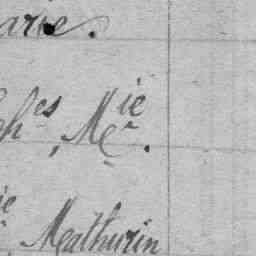 arie.
h^es, M^ie.
ie, Mathurin